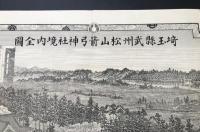 埼玉縣武州松山箭弓神社境内全圖